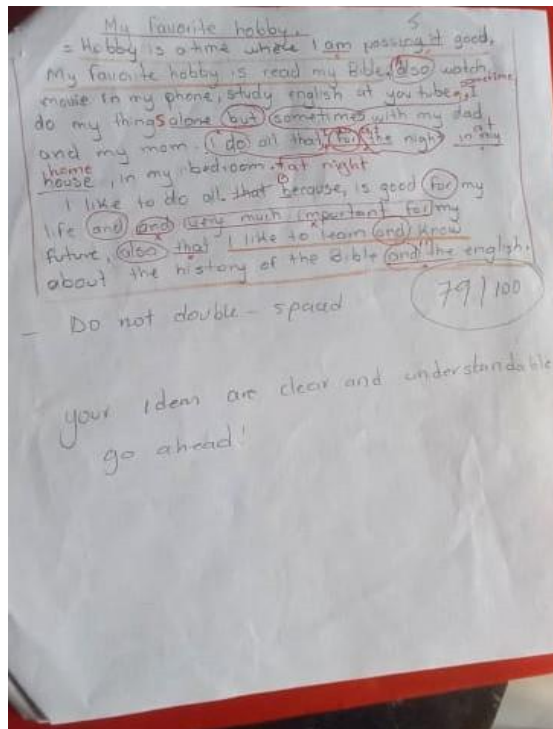 My favorite hobby.
= Hobby is a time where I am passing it good.
My favorite hobby is read my Bible, also watch
movie in my phone, study english at you tube, I
sometime
do my things alone but sometimes with my dad
and my mom. I do all that, for the night in my
at
home
house, in my bedroom. at night
I like to do all that because, is good for my
life and and very much important for my
future, also that I like to learn and know
about the history of the Bible and the english.
79/100
- Do not double - spaced
your ideas are clear and understandable
go ahead!